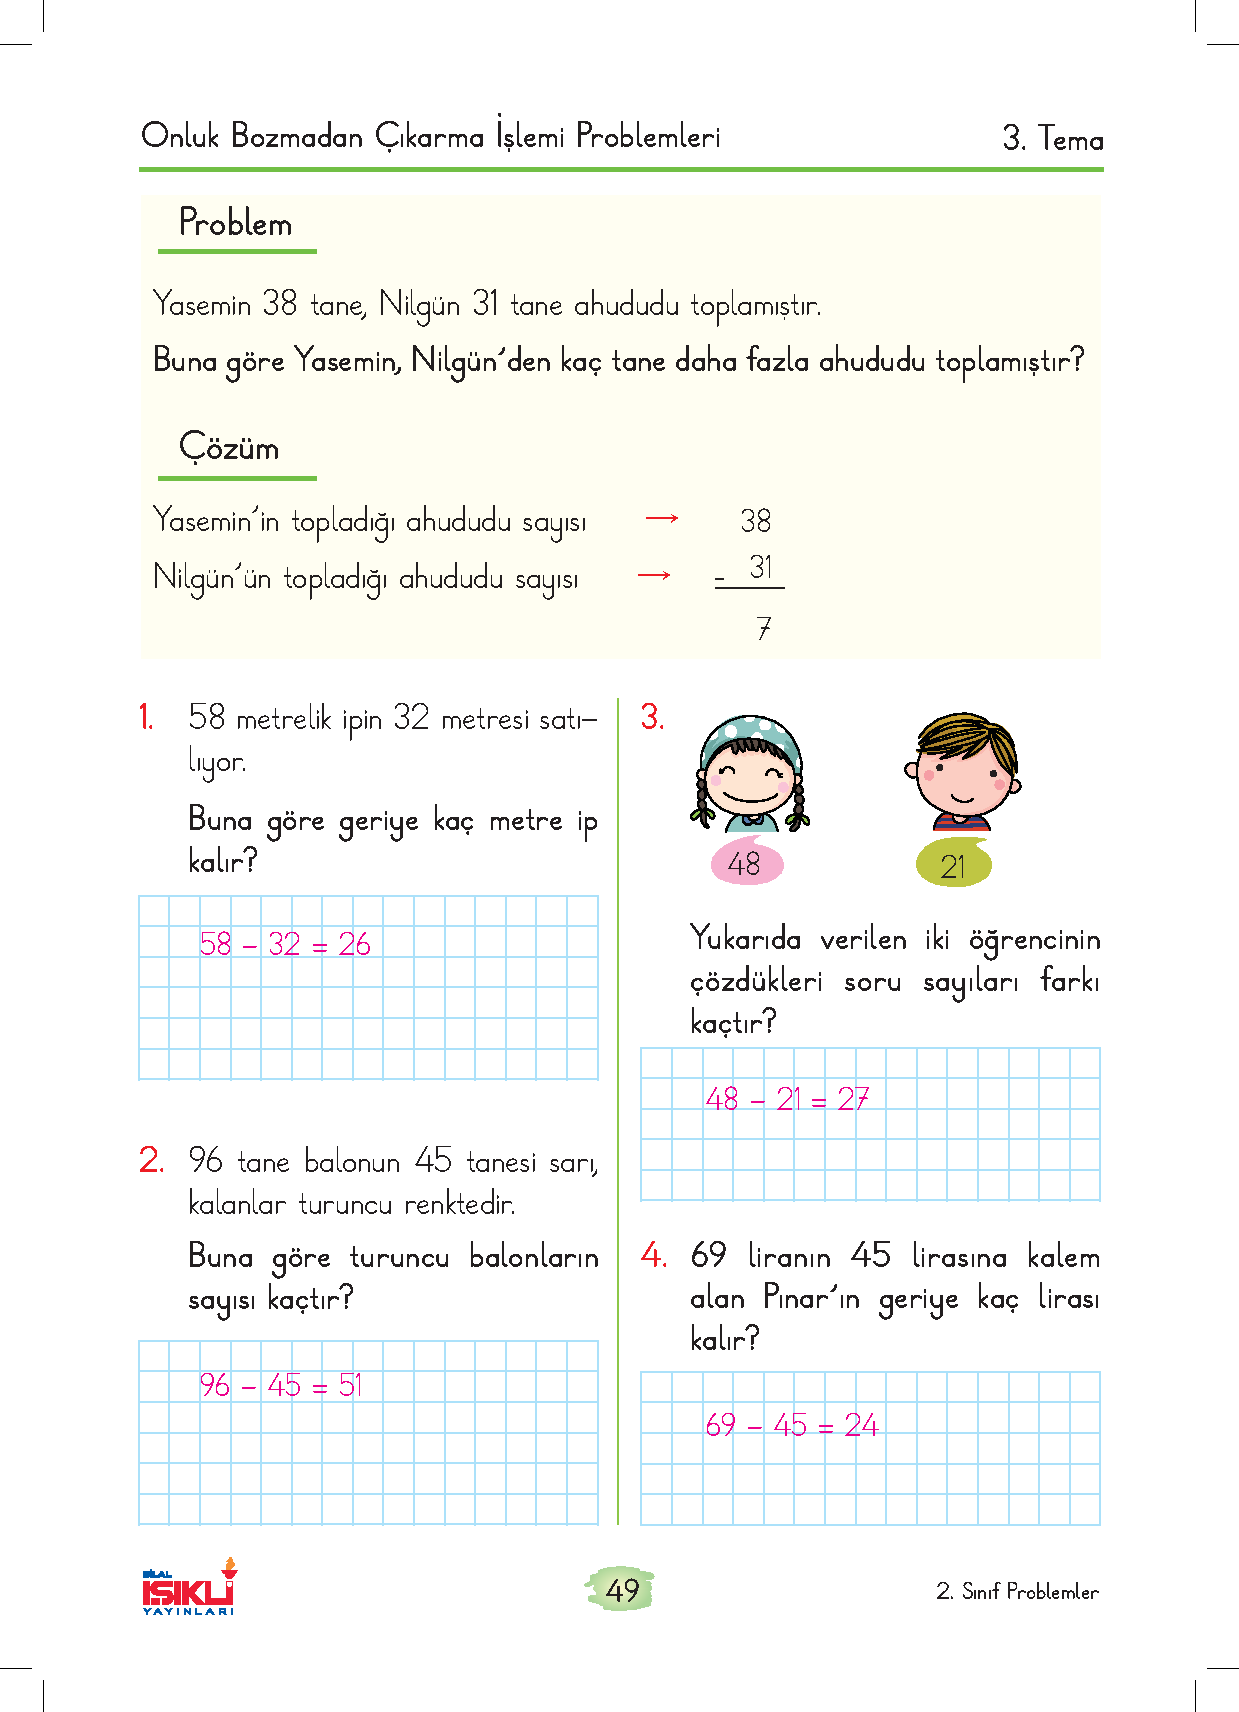 Onluk Bozmadan Çıkarma İşlemi Problemleri
3. Tema
Problem
Yasemin 38 tane, Nilgün 31 tane ahududu toplamıştır.
Buna göre Yasemin, Nilgün'den kaç tane daha fazla ahududu toplamıştır?
Çözüm
Yasemin'in topladığı ahududu sayısı → 38
Nilgün'ün topladığı ahududu sayısı → - 31
7
1. 58 metrelik ipin 32 metresi satı-
lıyor.
Buna göre geriye kaç metre ip
kalır?
58 - 32 = 26
2. 96 tane balonun 45 tanesi sarı,
kalanlar turuncu renktedir.
Buna göre turuncu balonların
sayısı kaçtır?
96 - 45 = 51
3.
48
21
Yukarıda verilen iki öğrencinin
çözdükleri soru sayıları farkı
kaçtır?
48 - 21 = 27
4. 69 liranın 45 lirasına kalem
alan Pınar'ın geriye kaç lirası
kalır?
69 - 45 = 24
BİLAL
IŞIKLI
YAYINLARI
49
2. Sınıf Problemler